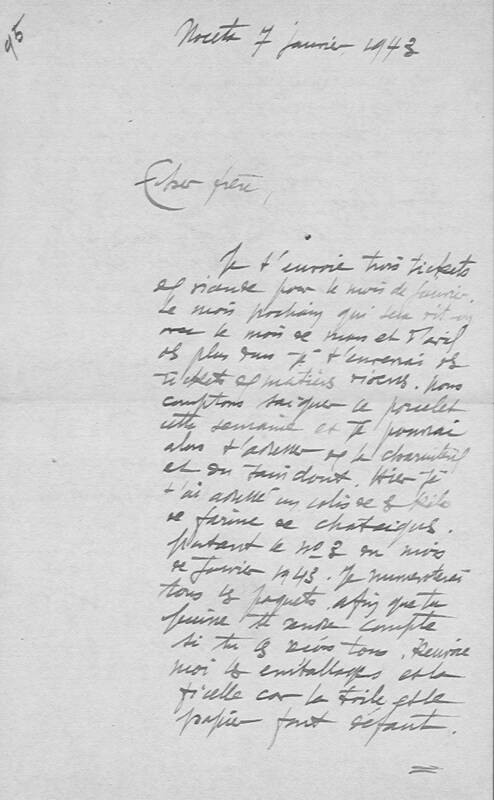 95
Noceta 7 janvier 1943
Cher frère,
Je t'envoie trois tickets
de viande pour le mois de janvier.
Le mois prochain qui sera dit-on
avec le mois de mars et d'avril
des plus durs je t'enverrai des
tickets de matières diverses. Nous
comptons saigner le porcelet
cette semaine et je pourrai
alors t'adresser de la charcuterie
et du saindoux. Hier je
t'ai adressé un colis de 3 kilo
de farine de chataigne.
portant le nº 3 du mois
de Janvier 1943. Je numéroterai
tous les paquets afin que tu
puisse te rendre compte
si tu les reçois tous. Renvoie
moi les emballages et la
ficelle car la toile et le
papier font défaut.